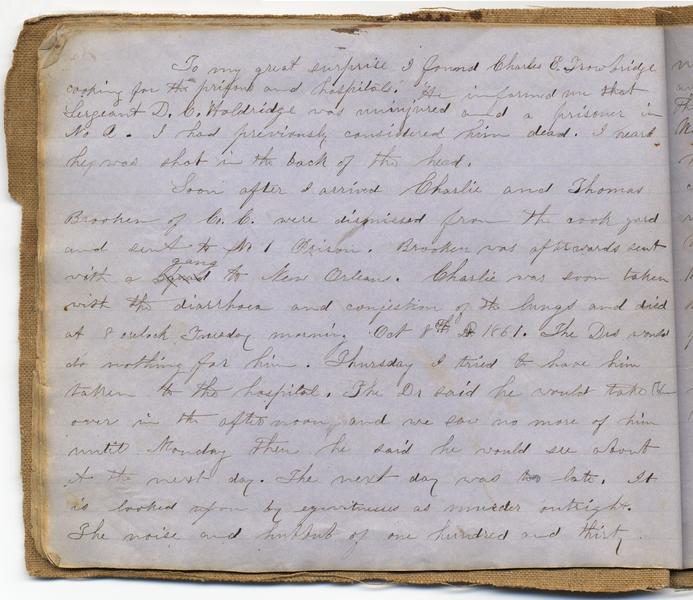 To my great surprise I found Charles E. Trowbridge
cooking for the prison and hospitals. He informed me that
Sergeant D. C. Holdridge was uninjured and a prisoner in
No 2. I had previously considered him dead. I heard
he was shot in the back of the head.
Soon after I arrived Charlie and Thomas
Brooken of Co. C. were dismissed from the cook yard
and sent to No 1 Prison. Brooken was afterwards sent
gang
with a to New Orleans. Charlie was soon taken
with the diarrhoea and conjestion of the lungs and died
at 8 oclock Tuesday mornin. Oct 8th 1861. The Drs would
do nothing for him. Thursday I tried to have him
taken to the hospital. The Dr said he would take him
over in the afternoon, and we saw no more of him
until Monday then he said he would see about
it the next day. The next day was too late. It
is looked upon by eyewitnesses as murder outright.
The noise and hubbub of one hundred and thirty